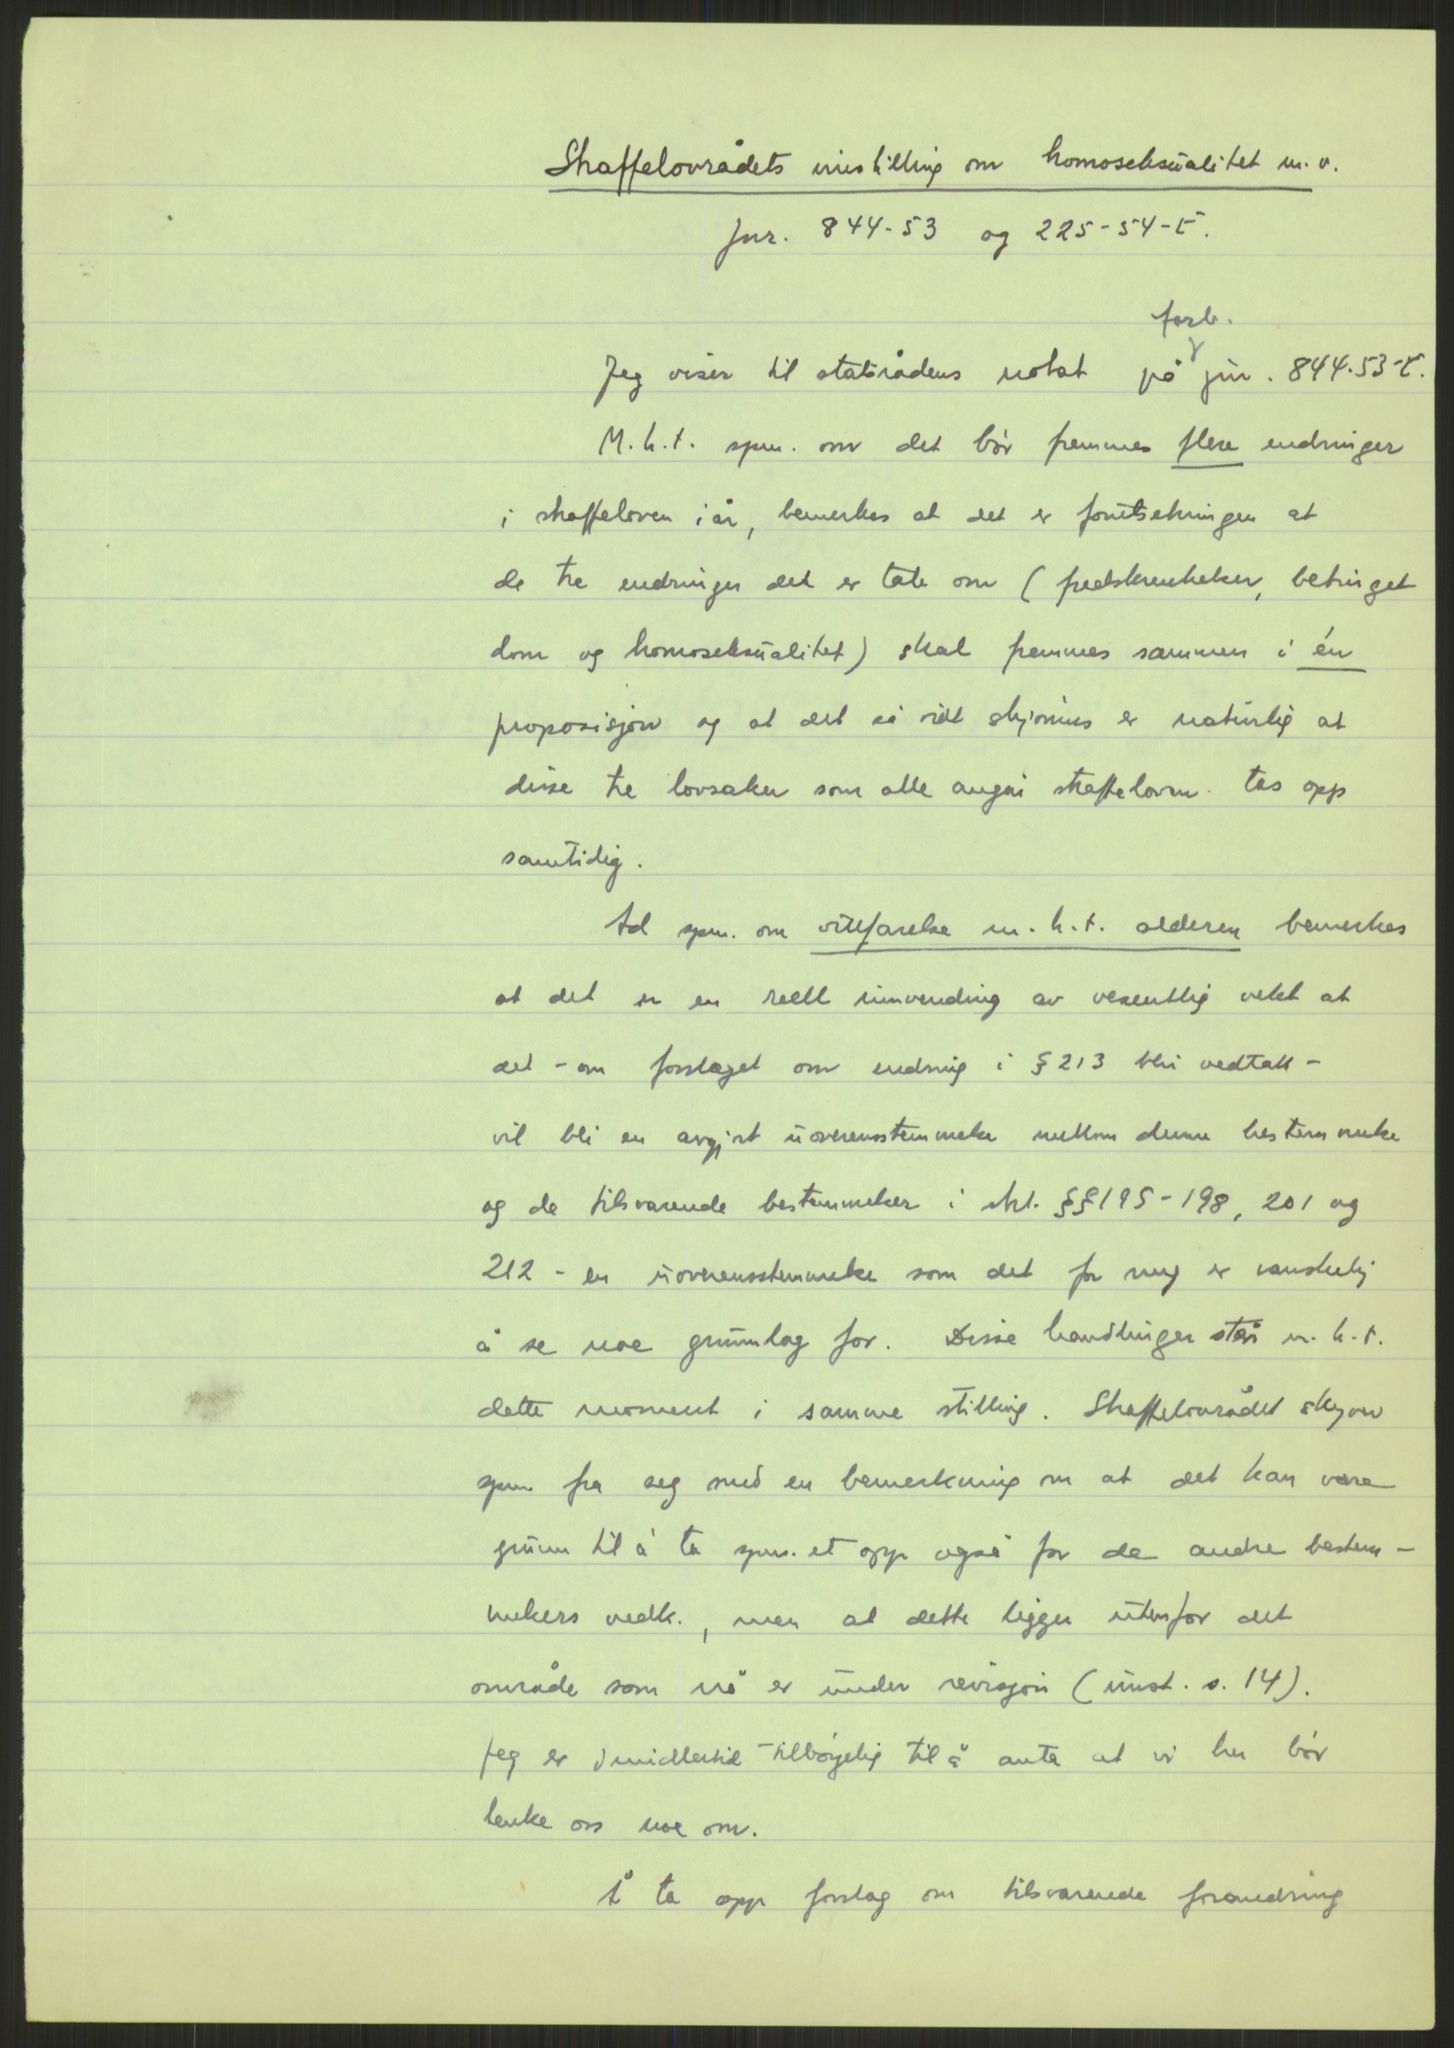 Straffelovrådets innstilling om homoseksualitet m.v.
Jnr. 844-53 og 225-54-E.
forb.
Jeg viser til statsrådens notat på jnr. 844-53-E.
M.h.t. spm. om det bør fremmes flere endringer
i straffeloven i år, bemerkes at det er forutsetningen at
de tre endringer det er tale om (fredskrenkelser, betinget
dom og homoseksualitet) skal fremmes sammen i én
proposisjon og at det så vidt skjønnes er naturlig at
disse tre lovsaker som alle angår straffeloven tas opp
samtidig.
Ad spm. om villfarelse m.h.t. alderen bemerkes
at det er en reell innvending av vesentlig vekt at
det - om forslaget om endring i § 213 blir vedtatt -
vil bli en avgjort uoverensstemmelse mellom denne bestemmelse
og de tilsvarende bestemmelser i strl. §§ 195-198, 201 og
212 - en uoverensstemmelse som det for meg er vanskelig
å se noe grunnlag for. Disse handlinger står m.h.t.
dette moment i samme stilling. Straffelovrådet skyver
spm. fra seg med en bemerkning om at det kan være
grunn til å ta spm.et opp også for de andre bestem-
melsers vedk., men at dette ligger utenfor det
område som nå er under revisjon (innst. s. 14).
Jeg er imidlertid tilbøyelig til å anta at vi her bør
tenke oss noe om.
Å ta opp forslag om tilsvarende forandring